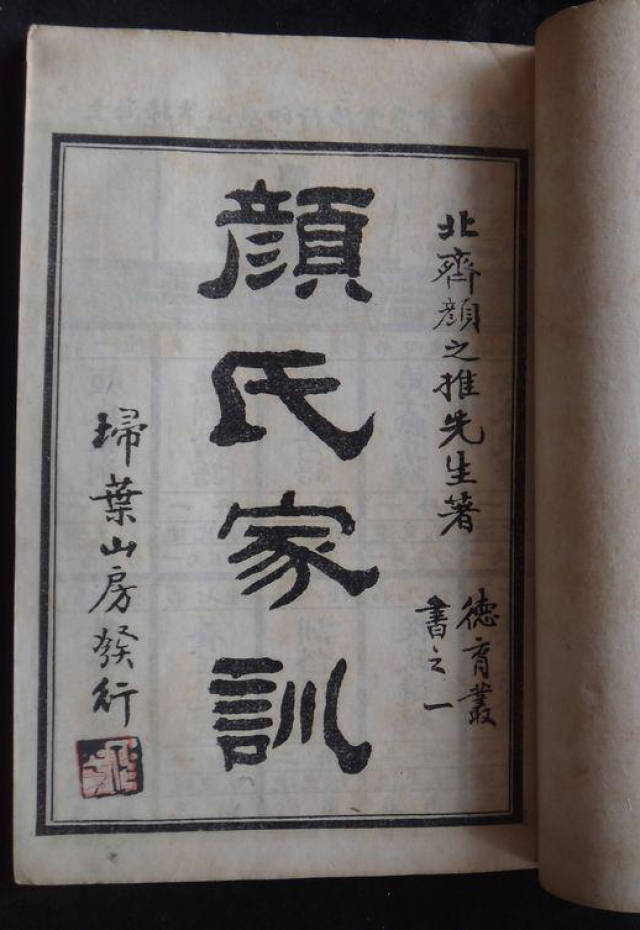 北齊顔之推先生著
德育叢
書之一
顔氏家訓
埽葉山房發行